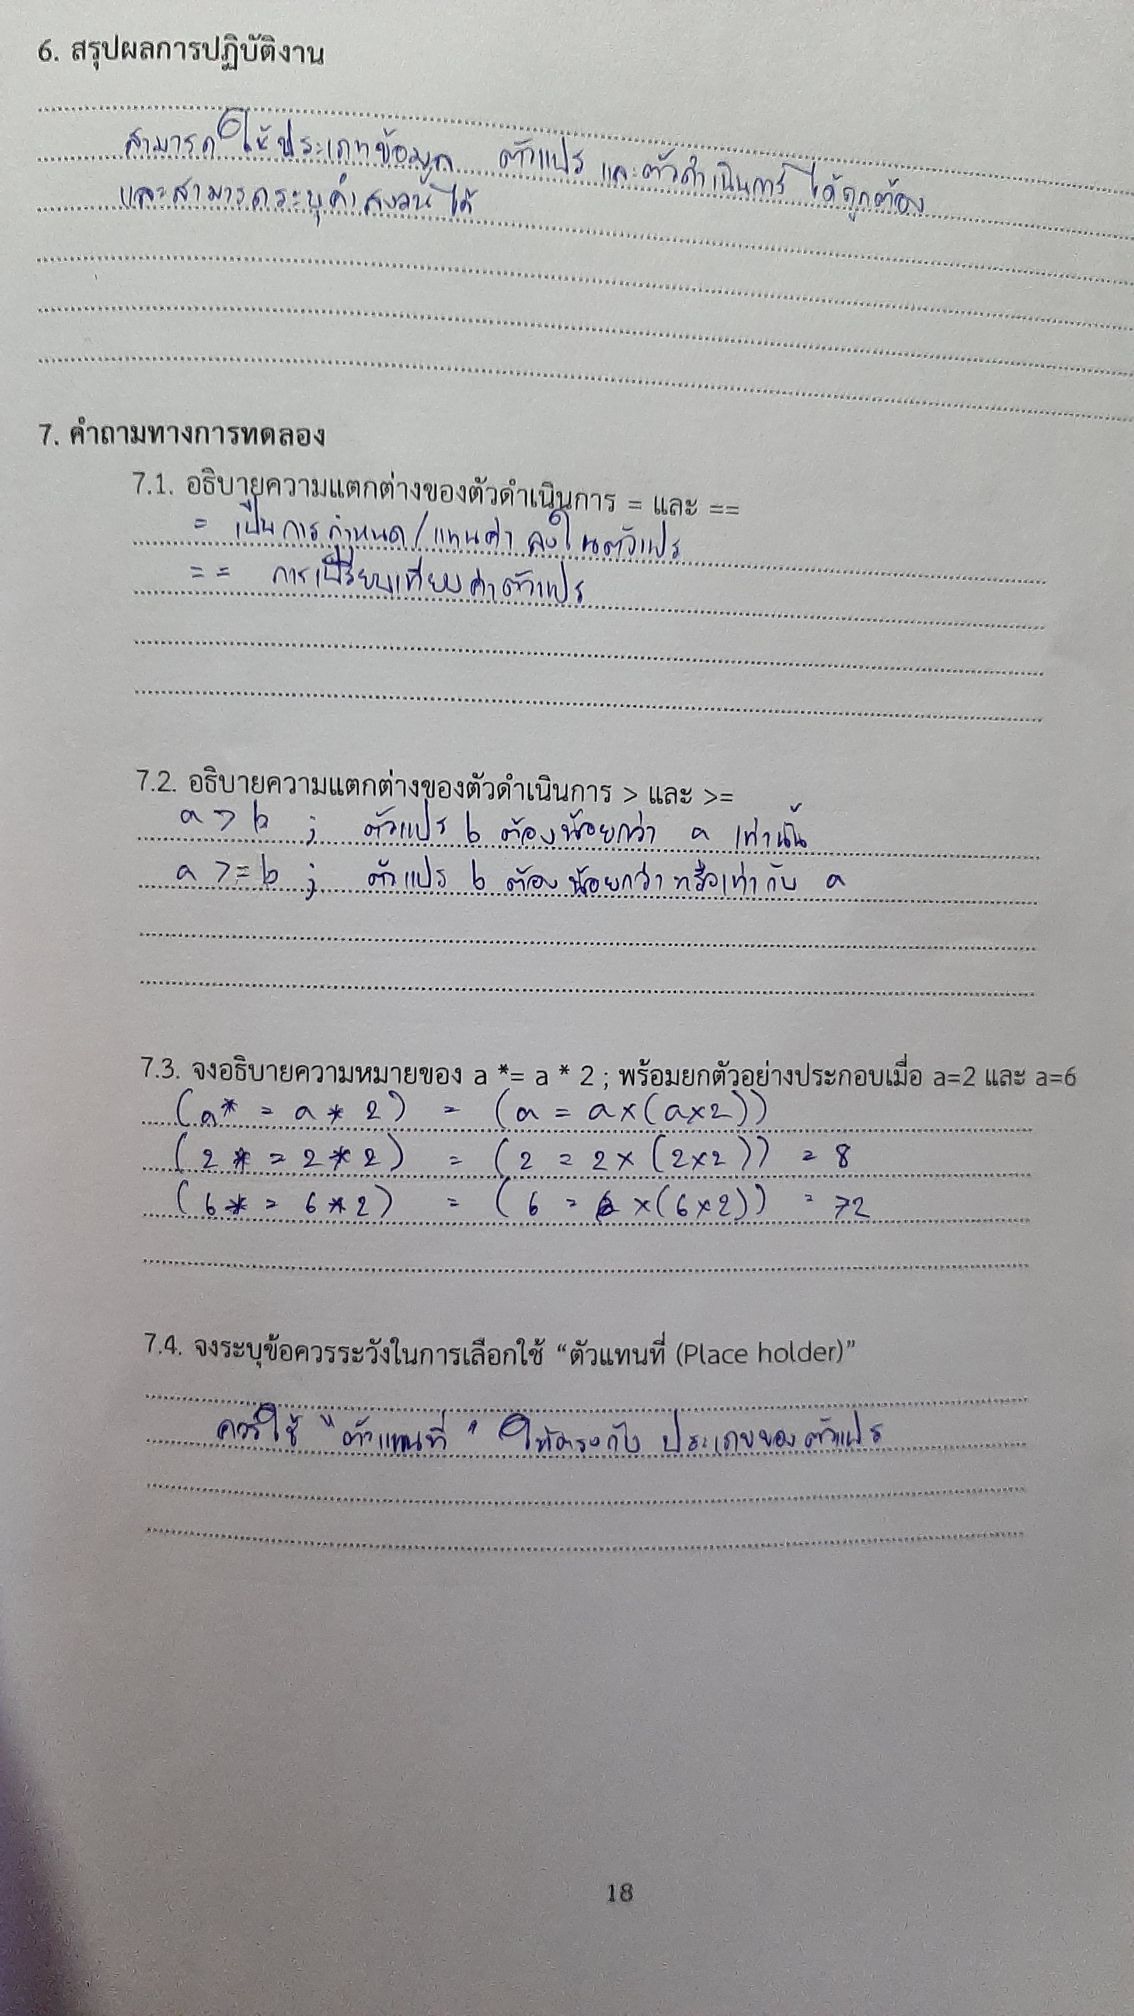 6. สรุปผลการปฏิบัติงาน
สามารถใช้ประเภทข้อมูล ตัวแปร และตัวดำเนินการ ได้ถูกต้อง
และสามารถระบุคำสงวนได้
7. คำถามทางการทดลอง
7.1. อธิบายความแตกต่างของตัวดำเนินการ = และ ==
= เป็นการกำหนด/แทนค่า ลงในตัวแปร
== การเปรียบเทียบค่าตัวแปร
7.2. อธิบายความแตกต่างของตัวดำเนินการ > และ >=
a > b ; ตัวแปร b ต้องน้อยกว่า a เท่านั้น
a >= b ; ตัวแปร b ต้องน้อยกว่าหรือเท่ากับ a
7.3. จงอธิบายความหมายของ a *= a * 2 ; พร้อมยกตัวอย่างประกอบเมื่อ a=2 และ a=6
(a* = a * 2) = (a = a×(a×2))
(2 * = 2 * 2) = (2 = 2×(2×2)) = 8
(6 * = 6 * 2) = (6 = 6×(6×2)) = 72
7.4. จงระบุข้อควรระวังในการเลือกใช้ “ตัวแทนที่ (Place holder)”
ควรใช้ "ตัวแทนที่" ให้ตรงกับ ประเภทของตัวแปร
18